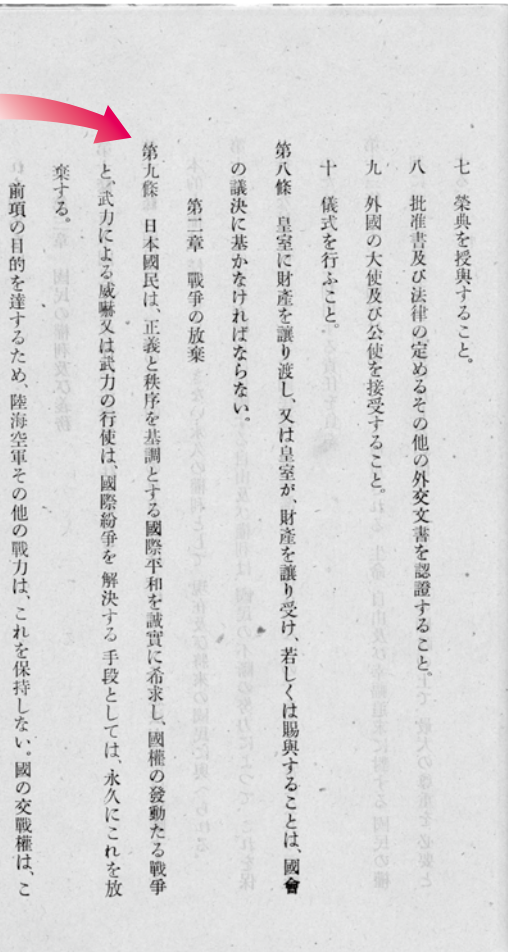 七　榮典を授與すること。
八　批准書及び法律の定めるその他の外交文書を認證すること。
九　外國の大使及び公使を接受すること。
十　儀式を行ふこと。
第八條　皇室に財產を讓り渡し、又は皇室が、財產を讓り受け、若しくは賜與することは、國會
の議決に基かなければならない。
第二章　戰爭の放棄
第九條　日本國民は、正義と秩序を基調とする國際平和を誠實に希求し、國權の發動たる戰爭
と、武力による威嚇又は武力の行使は、國際紛爭を解決する手段としては、永久にこれを放
棄する。
前項の目的を達するため、陸海空軍その他の戰力は、これを保持しない。國の交戰權は、こ